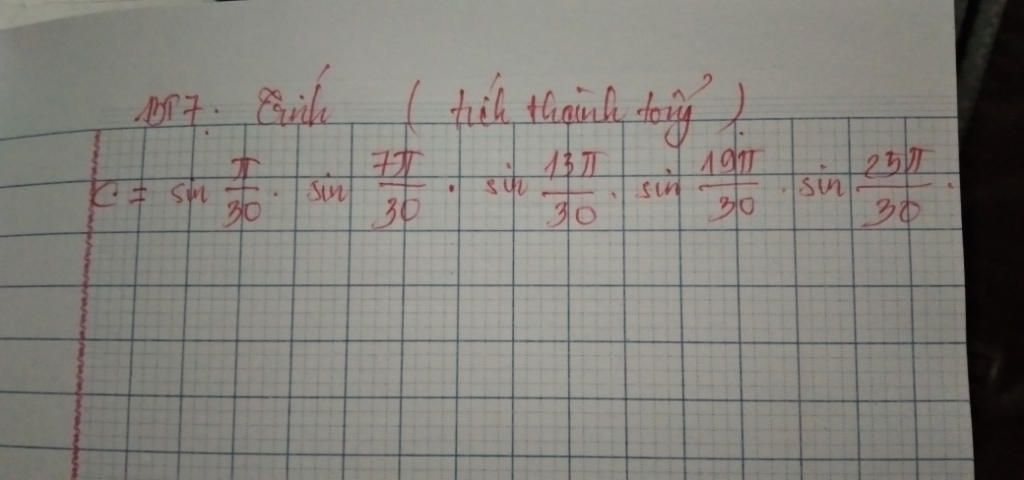 BT7. Tính ( tích thành tổng )
C = sin π/30 . sin 7π/30 . sin 13π/30 . sin 19π/30 . sin 25π/30 .